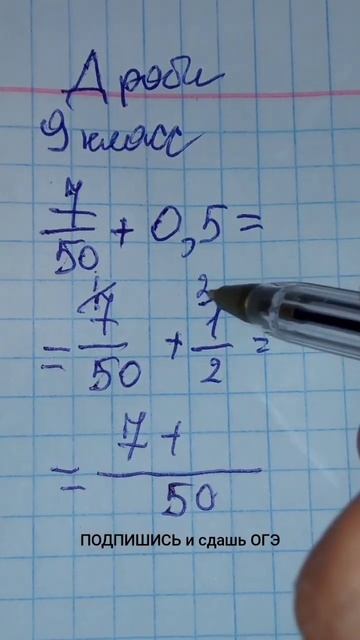 Дроби
9 класс
7/50 + 0,5 =
= 7/50 + 1/2 =
= 7 + /50
ПОДПИШИСЬ и сдашь ОГЭ